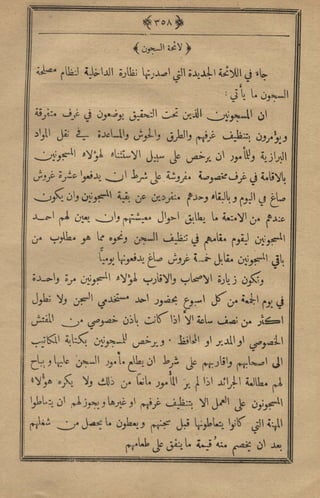 ﴿٣٥٨﴾
﴿ لائحة السجون ﴾
جاء في اللائحة الجديدة التي اصدرتها نظارة الداخلية لنظام مصلحة
السجون ما يأتي :
ان المسجونين الذين تحت التحقيق يوضعون في غرف متفرقة
ويؤمرون بتنظيف غرفهم والطرق والحوش والمساعدة في نقل المواد
البرازية وللمأمور ان يرخص على سبيل الاستثناء لهؤلاء المسجونين
بالاقامة في غرف مخصوصة مفروشة على شرط ان يدفعوا عشرة غروش
صاغ في اليوم وبالبقاء وحدهم منفردين عن بقية المسجونين وان يكون
عندهم من الامتعة ما يطابق احوال معيشتهم وان يعين لهم احد
المسجونين ليقوم مقامهم في تنظيف السجن ونحوه مما هو مطلوب من
باقي المسجونين مقابل خمسة غروش صاغ يدفعونها يومياً
وتكون زيارة الاصحاب والاقارب لهؤلاء المسجونين مرة واحدة
في يوم الجمعة من كل اسبوع بحضور احد مستخدمي السجن ولا تطول
اكثر من نصف ساعة الا اذا كانت باذن خصوصي من المفتش
الخصوصي او المدير او المحافظ . ويرخص للمسجونين بكتابة المكاتيب
الى اصحابهم واقاربهم على شرط ان يطلع مأمور السجن عليها ويباح
لهم مطالعة الجرائد اذا لم ير المأمور مانعاً من ذلك ولا يكره هؤلاء
المسجونون على العمل الا بتنظيف غرفهم او غيرها ويجوز لهم ان يتعاطوا
المهنة التي كانوا يتعاطونها قبل سجنهم ويعطون ما يحصل من شغلهم
بعد ان يخصم منه قيمة ما ينفق على طعامهم